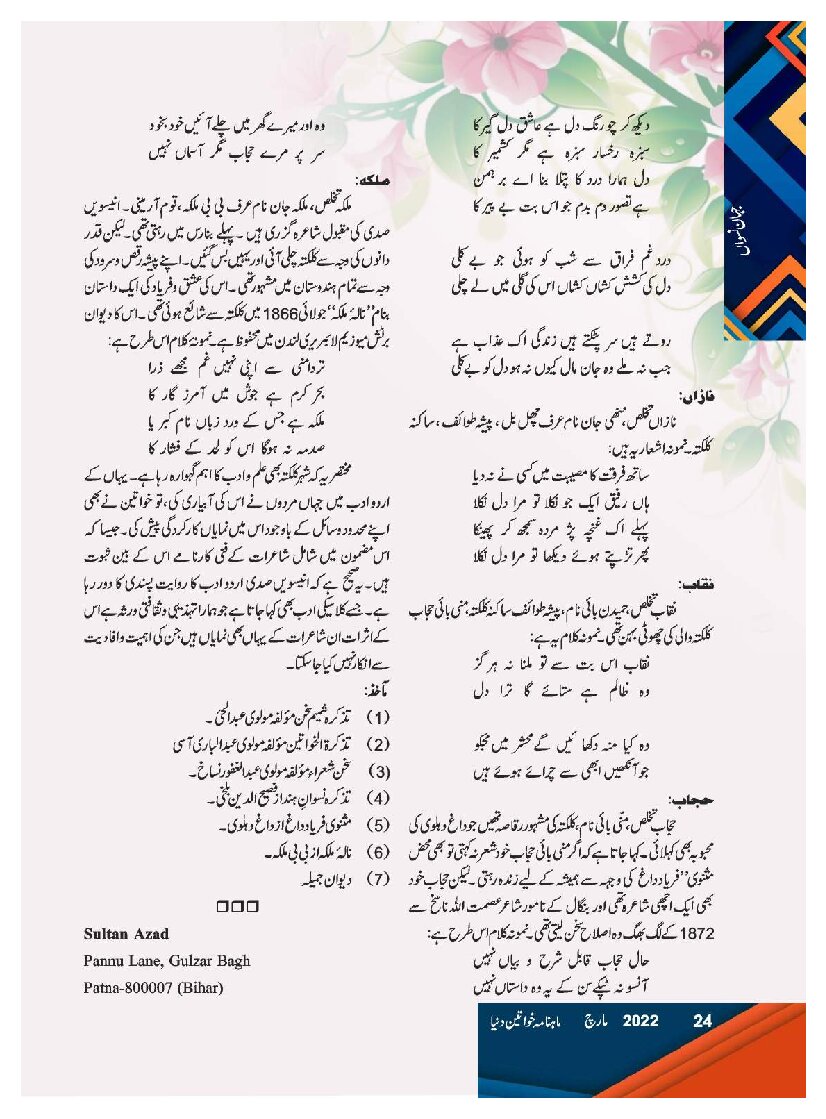 جہان نسواں
دیکھ کر چو رنگ دل ہے عاشق دل گیر کا
سبزہ رخسار سبزہ ہے مگر کشمیر کا
دل ہمارا درد کا پتلا بنا اے برہمن
ہے تصور دم بدم جو اس بت بے پیر کا
درد غم فراق سے شب کو ہوئی جو بے کلی
دل کی کشش کشاں کشاں اس کی گلی میں لے چلی
روتے ہیں سر پٹکتے ہیں زندگی اک عذاب ہے
جب نہ ملے وہ جان مال کیوں نہ ہو دل کو بے کلی
نازاں:
نازاں تخلص، ننھی جان نام عرف چھل بل، پیشہ طوائف، ساکنہ
کلکتہ۔ نمونہ اشعار یہ ہیں:
ساتھ فرقت کا مصیبت میں کسی نے نہ دیا
ہاں رفیق ایک جو نکلا تو مرا دل نکلا
پہلے اک غنچہ پژ مردہ سمجھ کر پھینکا
پھر تڑپتے ہوئے دیکھا تو مرا دل نکلا
نقاب:
نقاب تخلص، جمیدن بائی نام، پیشہ طوائف ساکنہ کلکتہ، منی بائی حجاب
کلکتہ والی کی چھوٹی بہن تھی۔ نمونہ کلام یہ ہے:
نقاب اس بت سے تو ملنا نہ ہر گز
وہ ظالم ہے ستائے گا ترا دل
وہ کیا منہ دکھائیں گے محشر میں مجکو
جو آنکھیں ابھی سے چرائے ہوئے ہیں
حجاب:
حجاب تخلص، منّی بائی نام، کلکتہ کی مشہور رقاصہ تھیں جو داغ دہلوی کی
محبوبہ بھی کہلائی۔ کہا جاتا ہے کہ اگر منی بائی حجاب خود شعر نہ کہتی تو بھی محض
مثنوی ’’فریاد داغ‘‘ کی وجہہ سے ہمیشہ کے لیے زندہ رہتی۔ لیکن حجاب خود
بھی ایک اچھی شاعرہ تھی اور بنگال کے نامور شاعر عصمت اللہ ناسخ سے
1872 کے لگ بھگ وہ اصلاح سخن لیتی تھی۔ نمونہ کلام اس طرح ہے:
حال حجاب قابل شرح و بیاں نہیں
آنسو نہ ٹپکے سن کے یہ وہ داستاں نہیں
وہ اور میرے گھر میں چلے آئیں خود بخود
سر پر مرے حجاب مگر آسماں نہیں
ملکہ:
ملکہ تخلص، ملکہ جان نام عرف بی بی ملکہ، قوم آرمینی۔ انیسویں
صدی کی مقبول شاعرہ گزری ہیں۔ پہلے بنارس میں رہتی تھی۔ لیکن قدر
دانوں کی وجہ سے کلکتہ چلی آئی اور یہیں بس گئیں۔ اپنے پیشہ رقص و سرود کی
وجہ سے تمام ہندوستان میں مشہور تھی۔ اس کی عشق و فریاد کی ایک داستان
بنام ’’نالۂ ملکہ‘‘ جولائی 1866 میں کلکتہ سے شائع ہوئی تھی۔ اس کا دیوان
برٹش میوزیم لائبریری لندن میں محفوظ ہے۔ نمونۂ کلام اس طرح ہے:
تر دامنی سے اپنی نہیں غم مجھے ذرا
بحر کرم ہے جوش میں آمرز گار کا
ملکہ ہے جس کے ورد زباں نام کبریا
صدمہ نہ ہوگا اس کو لحد کے فشار کا
مختصر یہ کہ شہر کلکتہ بھی علم و ادب کا اہم گہوارہ رہا ہے۔ یہاں کے
اردو ادب میں جہاں مردوں نے اس کی آبیاری کی، تو خواتین نے بھی
اپنے محدود وسائل کے باوجود اس میں نمایاں کارکردگی پیش کی۔ جیسا کہ
اس مضمون میں شامل شاعرات کے فنی کارنامے اس کے بین ثبوت
ہیں۔ یہ صحیح ہے کہ انیسویں صدی اردو ادب کا روایت پسندی کا دور رہا
ہے۔ جسے کلاسیکی ادب بھی کہا جاتا ہے جو ہمارا تہذیبی و ثقافتی ورثہ ہے اس
کے اثرات ان شاعرات کے یہاں بھی نمایاں ہیں جن کی اہمیت و افادیت
سے انکار نہیں کیا جاسکتا۔
مآخذ:
(1) تذکرہ شمیم سخن مؤلفہ مولوی عبدالحئی۔
(2) تذکرۃ الخواتین مؤلفہ مولوی عبدالباری آسی
(3) سخن شعراء مؤلفہ مولوی عبدالغفور نساخ۔
(4) تذکرہ نسوان ہند از فصیح الدین بلخی۔
(5) مثنوی فریاد داغ از داغ دہلوی۔
(6) نالۂ ملکہ از بی بی ملکہ۔
(7) دیوان جمیلہ
□□□
Sultan Azad
Pannu Lane, Gulzar Bagh
Patna-800007 (Bihar)
ماہنامہ خواتین دنیا مارچ 2022 24